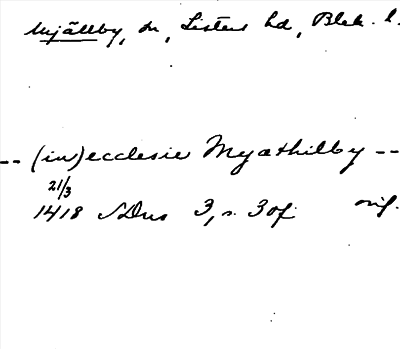 Mjällby, sn, Listers hd, Blek. l.
-- (in) ecclesie Myathilby --
21/3
1418 SDns 3, s. 30f orig.